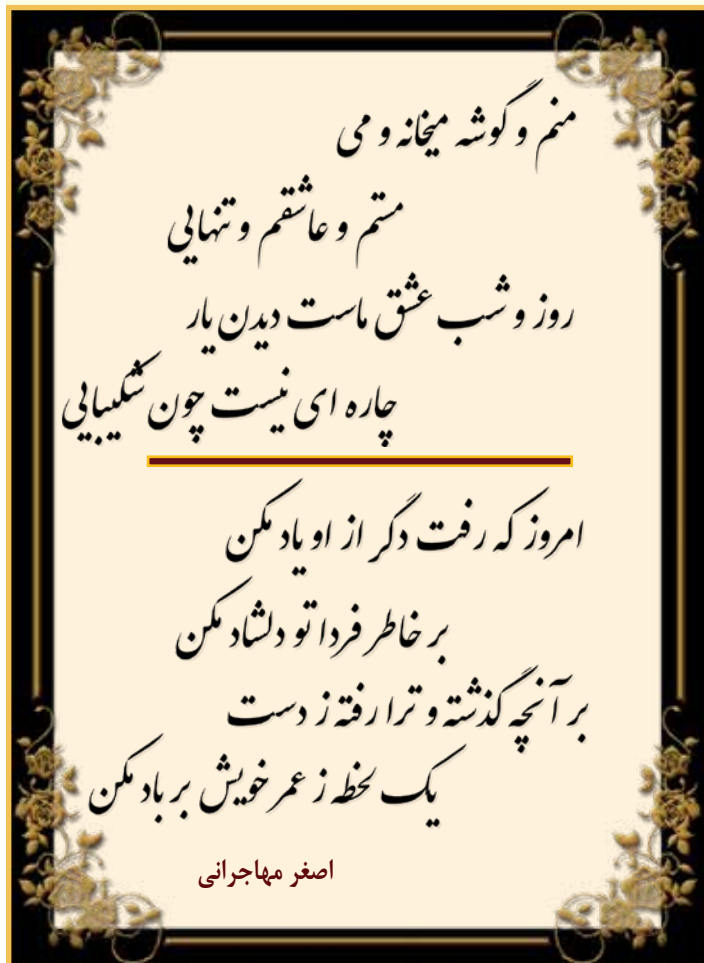 منم و گوشه میخانه و می
مستم و عاشقم و تنهایی
روز و شب عشق ماست دیدن یار
چاره ای نیست چون شکیبایی
امروز که رفت دگر از او یاد مکن
بر خاطر فردا تو دلشاد مکن
بر آنچه گذشته و ترا رفته ز دست
یک لحظه ز عمر خویش بر باد مکن
اصغر مهاجرانی